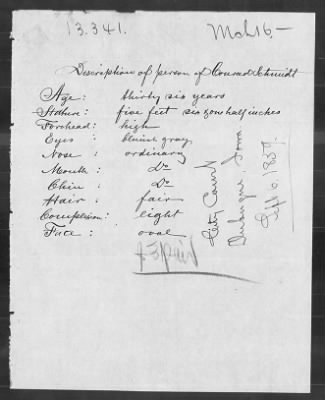 13.341.
Mch 16.—
Description of person of Conrad Schmidt
Age : thirty six years
Stature : five feet six & one half inches
Forehead : high
Eyes : bluish gray
Nose : ordinary
Mouth : Do
Chin : Do
Hair : fair
Complexion : light
Face : oval
City Court
Dubuque, Iowa
Sept 6, 1859.